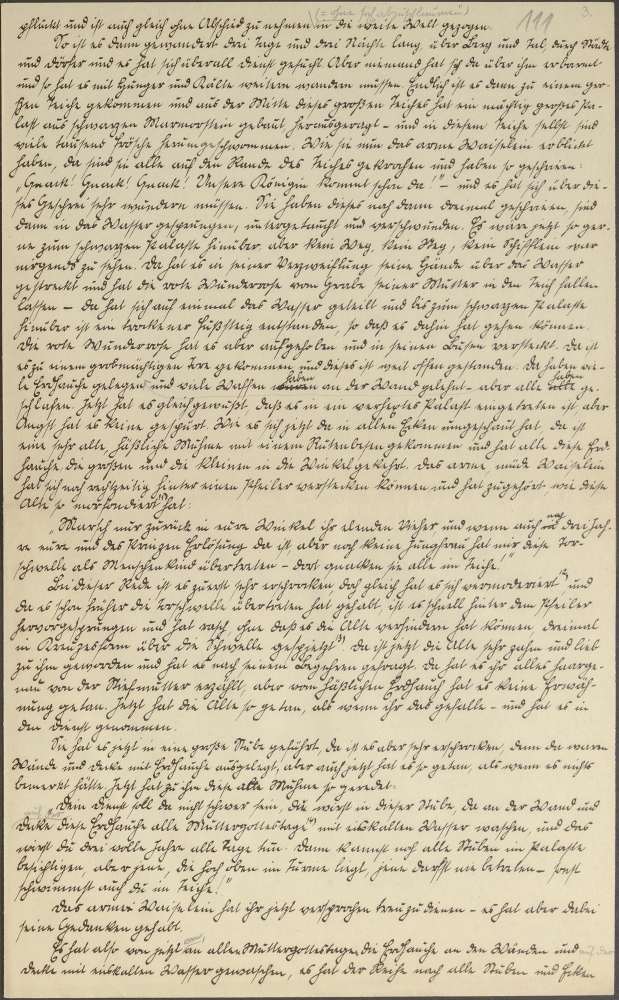 (= ohne sich abzuschleunen)
111 3.
pflückt und ist auch gleich ohne Abschied zu nehmen in die weite Welt gezogen.
So ist es dann gewandert drei Tage und drei Nächte lang, über Berg und Tal, durch Städte
und Dörfer und es hat sich überall Dienst gesucht. Aber niemand hat sich da über ihm erbarmt
und so hat es mit Hunger und Kälte weiters wandern müssen. Endlich ist es dann zu einem gro-
ßen Teiche gekommen und aus der Mitte dieses großen Teiches hat ein mächtig großes Pa-
last aus schwarzen Marmorstein gebaut herausgeragt – und in diesem Teiche selbst sind
viele tausend Frösche herumgeschwommen. Wie sie nun das arme Waiselein erblickt
haben, da sind sie alle auf den Rande des Teiches gekrochen und haben so geschrieen:
„Quack! Quack! Quack! Unsere Königin kommt schon da!" – und es hat sich über die-
ses Geschrei sehr wundern müssen. Sie haben dieses noch dann dreimal geschrieen, sind
dann in das Wasser gesprungen, untergetaucht und verschwunden. Es wäre jetzt so ger-
ne zum schwarzen Palaste hinüber, aber kein Weg, kein Steg, kein Schifflein war
nirgends zu sehen. Da hat es in seiner Verzweiflung seine Hände über das Wasser
gestreckt und hat die rote Wunderrose vom Grabe seiner Mutter in den Teich fallen
lassen – da hat sich auf einmal das Wasser geteilt und bis zum schwarzen Palaste
hinüber ist ein trockener Fußsteig entstanden, so daß es dahin hat gehen können.
Die rote Wunderrose hat es aber aufgehoben und in seinen Busen versteckt. Da ist
es zu einem großmächtigen Tore gekommen und dieses ist weit offen gestanden. Da haben vie-
le Erdhauche gelegen und viele Waffen haben an der Wand gelehnt – aber alle haben ge-
schlafen. Jetzt hat es gleich gewußt, daß es in ein verhextes Palast eingetreten ist, aber
Angst hat es keine gespürt. Wie es sich jetzt da in allen Ecken umgeschaut hat, da ist
eine sehr alte, häßliche Muhme mit einem Rutenbesen gekommen und hat alle diese Erd-
hauche, die großen und die kleinen in die Winkel gekehrt. Das arme, müde Waiselein
hat sich noch rechtzeitig hinter einen Pfeiler verstecken können und hat zugehört wie diese
Alte so morfondiert hat:
„Marsch nur zurück in eure Winkel ihr elenden Viecher und wenn auch noch drei Jah-
re eure und des Prinzen Erlösung da ist, aber noch keine Jungfrau hat mir diese Tor-
schwelle als Menschenkind übertreten – dort quacken sie alle im Teiche."
Bei dieser Rede ist es zuerst sehr erschrocken, doch gleich hat es sich und
da es schon früher die Torschwelle übertreten hat gehabt, ist es schnell hinter dem Pfeiler
hervorgesprungen und hat rasch, ohne daß es die Alte verhindern hat können, dreimal
in Kreuzesform über die Schwelle gespietzt. Da ist jetzt die Alte sehr zahm und lieb
zu ihm geworden und hat es nach seinem Begehren gefragt. Da hat es ihr alles haarge-
nau von der Stiefmutter erzählt, aber vom häßlichen Erdhauch hat es keine Erwäh-
nung getan. Jetzt hat die Alte so getan, als wenn ihr das gefalle – und hat es in
den Dienst genommen.
Sie hat es jetzt in eine große Stube geführt, da ist es aber sehr erschrocken, denn da waren
Wände und Decke mit Erdhauche ausgelegt, aber auch jetzt hat es so getan, als wenn es nichts
bemerkt hätte. Jetzt hat zu ihm diese alte Muhme so geredet:
„Dein Dienst soll da nicht schwer sein, du wirst in dieser Stube, da an der Wand und
Decke diese Erdhauche alle Muttergottestage mit eiskalten Wasser waschen, und das
wirst du drei volle Jahre alle Tage tun. Dann kannst noch alle Stuben im Palaste
besichtigen, aber jene, die hoch oben im Turme liegt, jene darfst nie betreten – sonst
schwimmst auch du im Teiche!"
Das arme Waiselein hat ihr jetzt versprochen treu zu dienen – es hat aber dabei
seine Gedanken gehabt.
Es hat also von jetzt an allen Muttergottestagen die Erdhauche an den Wänden und
Decke mit eiskalten Wasser gewaschen, es hat der Reihe nach alle Stuben und Ecken